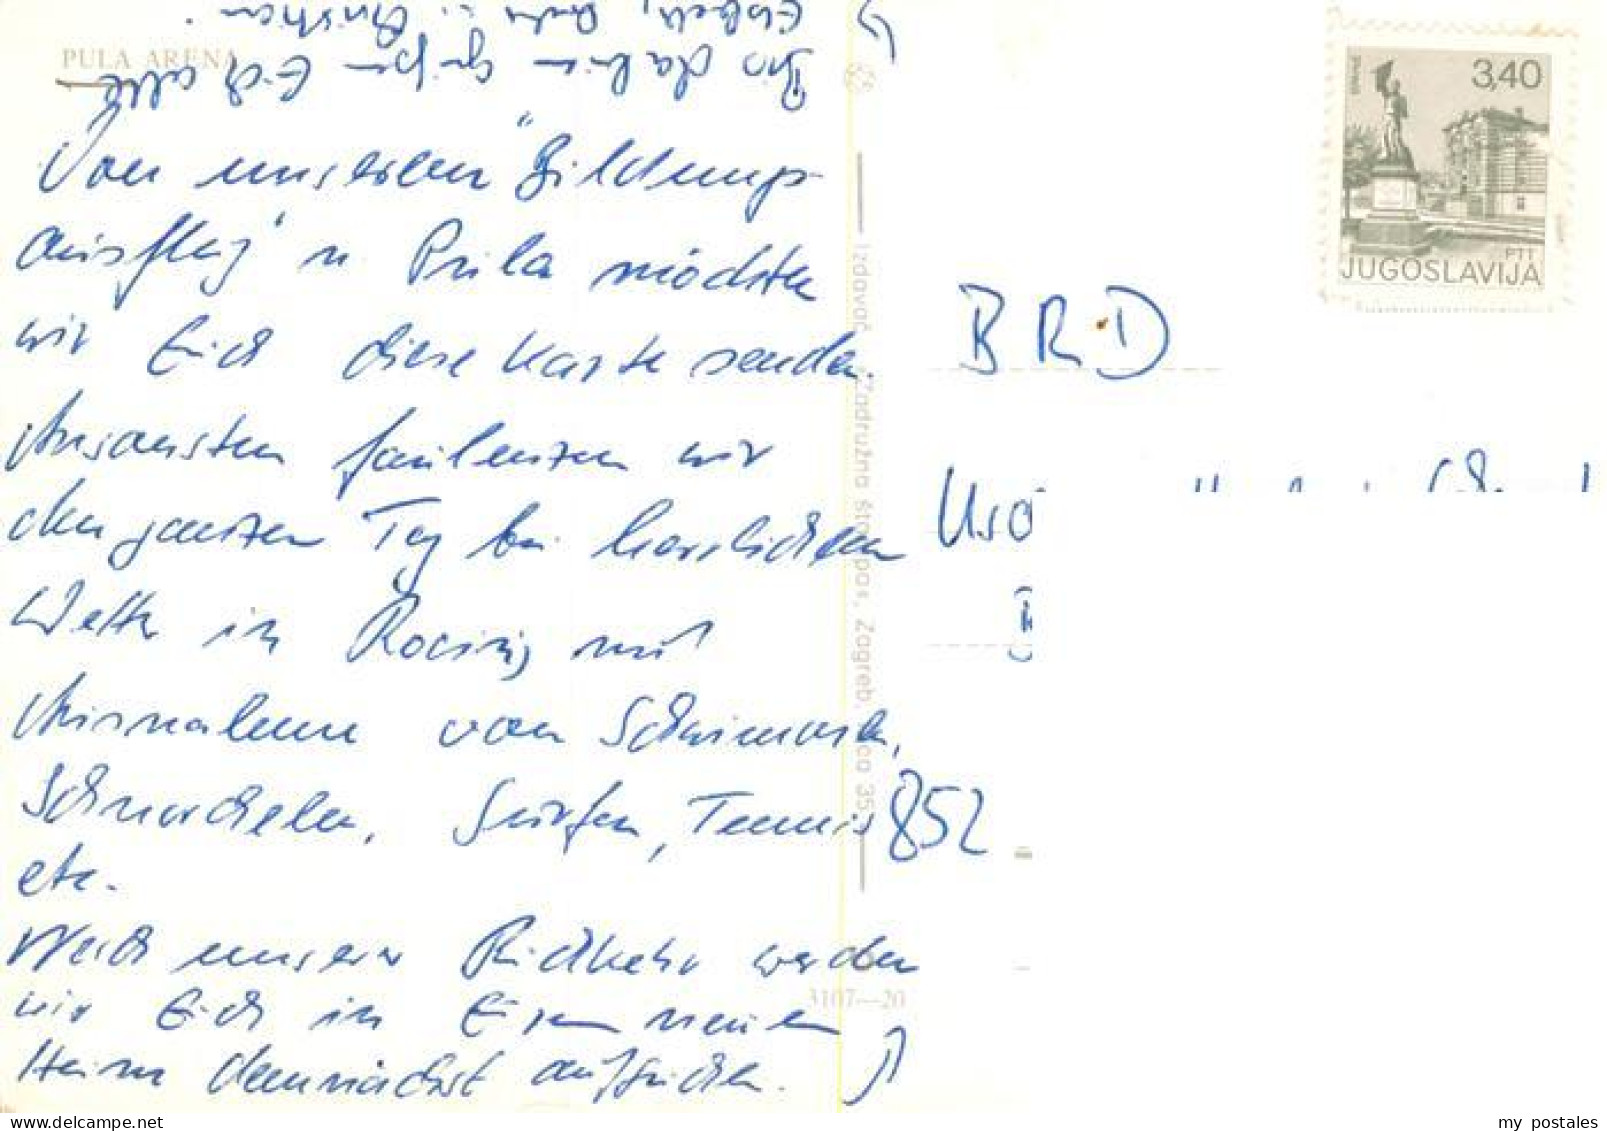 PULA ARENA
Von unseren "Bildungs-
ausflug" n. Pula möchten
wir Euch diese Karte senden.
Ansonsten faulenzen wir
den ganzen Tag bei herrlichem
Wetter in Rovinj mit
Ausnahme von Schwimmen,
Schnorcheln, Surfen, Tennis
etc.
Nach unserer Rückkehr werden
wir Euch in Eurem neuen
Heim demnächst aufsuchen.
Bis dahin grüßen Euch alle
Elsbeth, u. Christian.
Izdavač: Zadružna štampa, Zagreb,
3107—20
3,40
PTT
JUGOSLAVIJA
BRD
852
my_postales